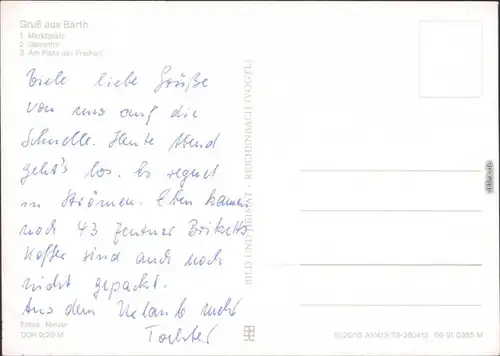 Gruß aus Barth
1. Marktplatz
2. Dammtor
3. Am Platz der Freiheit
Viele liebe Grüße
von uns auf die
Schnelle. Heute Abend
geht's los. Es regnet
in Strömen. Eben kamen
noch 43 Zentner Briketts
Koffer sind auch noch
nicht gepackt.
Aus dem Urlaub mehr
Tochter
Fotos: Melzer
DDR 0,20 M
BILD UND HEIMAT · REICHENBACH (VOGTL)